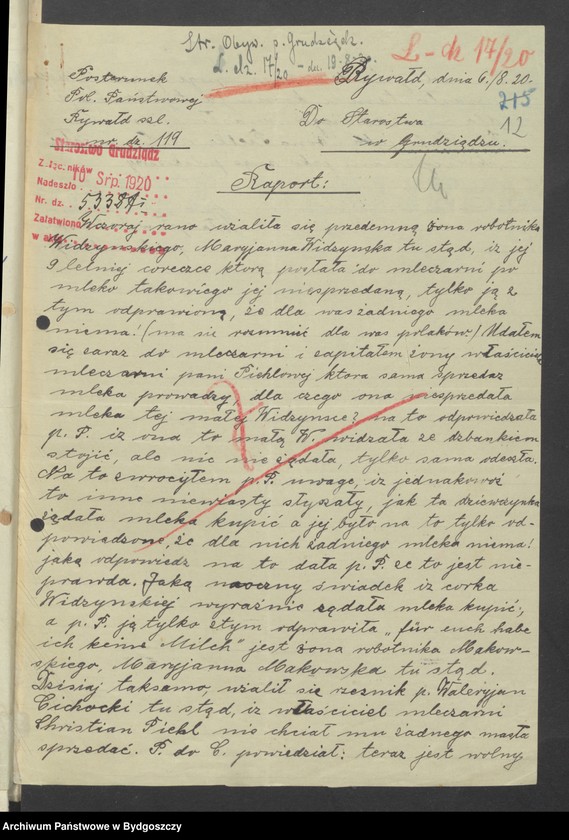 Str. Obyw. p. Grudziądz.
L. dz. 17/20 – dn. 19-8-20
L-dz 17/20
Posterunek
Rywałd, dnia 6./8. 20.
Pol. Państwowej
215
Rywałd szl.
Do Starostwa
12
nr. dz. 119
w Grudziądzu.
Starostwo Grudziądz
Załączników
Nadeszło 10 Srp. 1920
Nr. dz.
Załatwiono
Raport:
Wczoraj rano użaliła się przedemną żona robotnika
Widzynskiego, Maryjanna Widzynska tu stąd, iz jej
9 letniej coreczce którą posłała do mleczarni po
mleko takowiego jej niesprzedaną, tylko ją z
tym odprawioną, że dla was żadniego mleka
niema! (ma się rozumnić dla was polaków) Udałem
się zaraz do mleczarni i zapitałem żony właściciela
mleczarni pani Piehlowej ktora sama sprzedaz
mleka prowadzy, dla czego ona niesprzedała
mleka tej małej Widzynsce? na to odpowiedzała
p. P. iz ona to małą W. widzała ze dzbankiem
stojić, ale nic nie żądała, tylko sama odeszła.
Na to zwrociłem p. P. uwagę, iz jednakowoż
to inne niewiasty słyszały, jak ta dziewczynka
żądała mleka kupić a jej było na to tylko od-
powiedzone, że dla nich żadniego mleka niema!
jaką odpowiedz na to dała p. P. ze to jest nie-
prawda. Jaką naoczny świadek iz corka
Widzynskiej wyraźnie żądała mleka kupić,
a p. P. ją tylko z tym odprawiła „für euch habe
ich keine Milch" jest żona robotnika Makow-
skiego, Maryjanna Makowska tu stąd.
Dzisiaj taksamo, użalił się rzeznik p. Waleryjan
Cichocki tu stąd, iz właściciel mleczarni
Christian Piehl nie chciał mu żadnego masła
sprzedać. P. do C. powiedział: teraz jest wolny
Archiwum Państwowe w Bydgoszczy